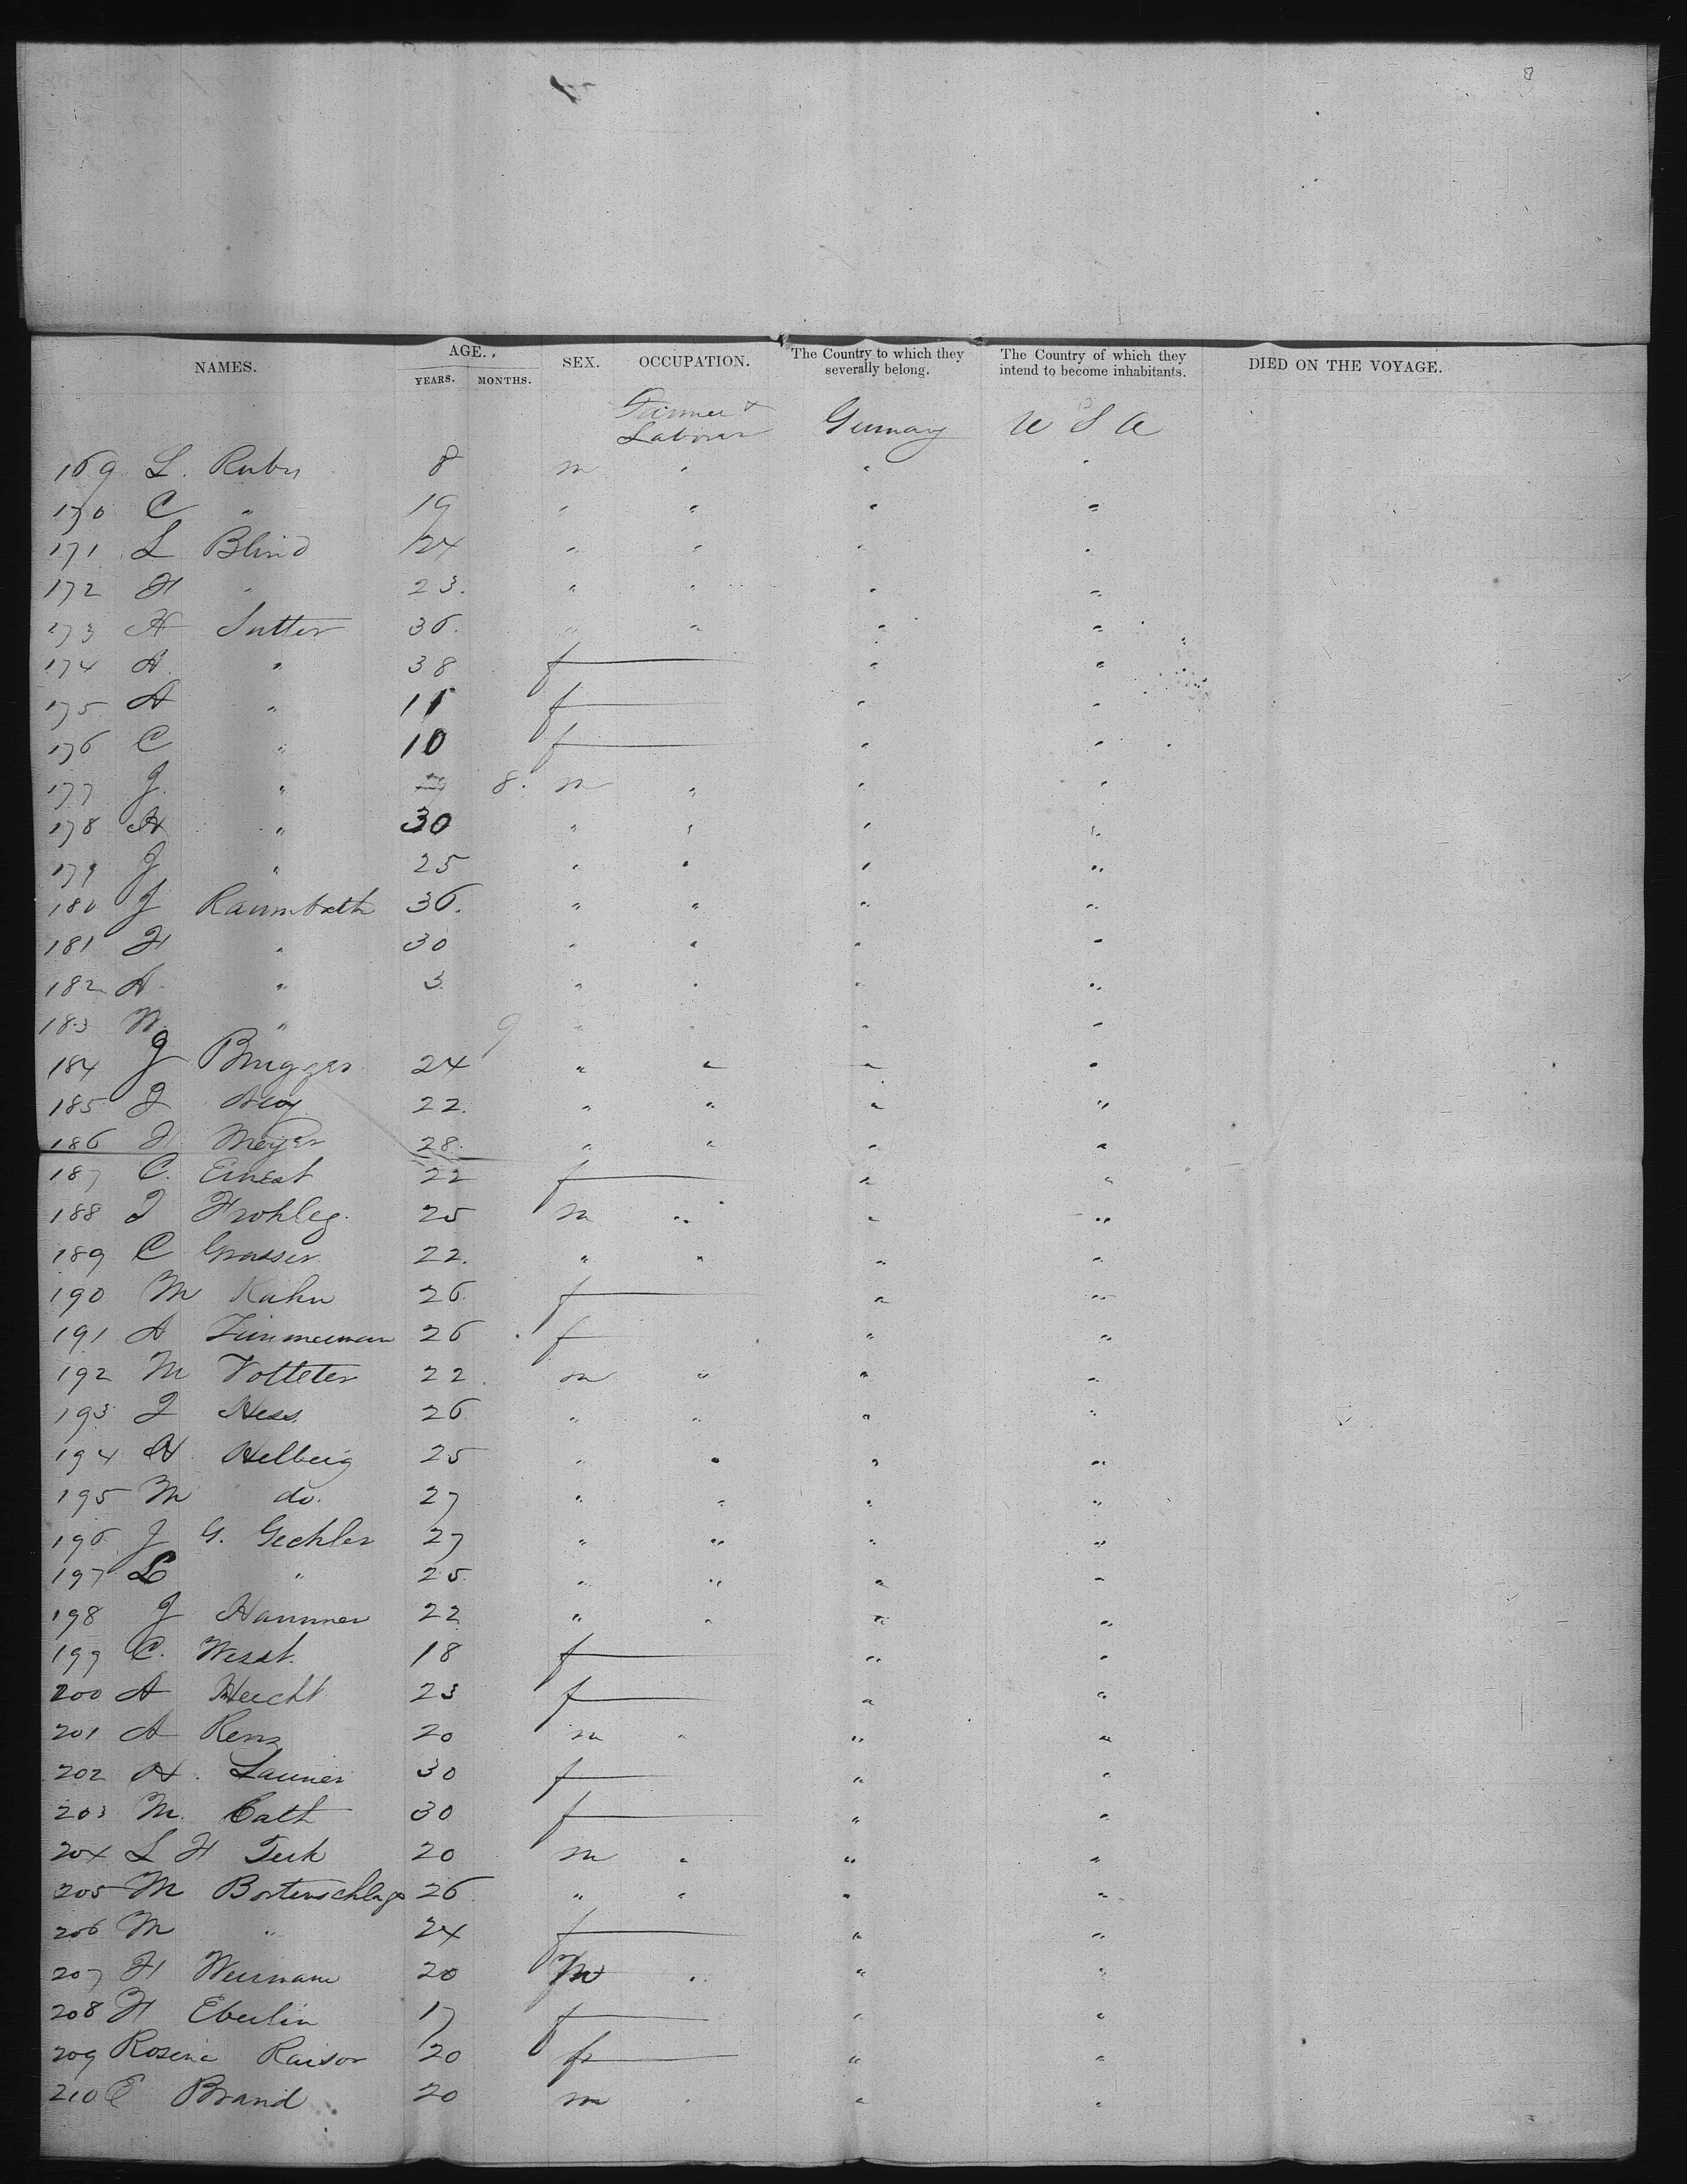 NAMES. AGE. YEARS. MONTHS. SEX. OCCUPATION. The Country to which they severally belong. The Country of which they intend to become inhabitants. DIED ON THE VOYAGE.
Farmer & Labourer Germany U S A
169 L. Ruby 8 m " " "
170 C " 19 " " " "
171 L Blind 24 " " " "
172 H " 23. " " " "
173 H Sutter 36. " " " "
174 A " 38 f " "
175 A " 11 f " "
176 C " 10 f " "
177 J. " 8. m " " "
178 H " 30 " " " "
179 J " 25 " " " "
180 J 36. " " " "
181 H " 30 " " " "
182 A " 3. " " " "
183 W. " 9 " " " "
184 J Brugger 24 " " " "
185 J 22. " " " "
186 Meyer 28. " " " "
187 C. Ernest 22 f " "
188 J 25 m " " "
189 C Grasser 22. " " " "
190 M Kuhn 26 f " "
191 A Zimmerman 26 f " "
192 M Votteter 22 m " " "
193 J Hess 26 " " " "
194 H Helbeig 25 " " " "
195 M do. 27 " " " "
196 J G. Gechler 27 " " " "
197 L " 25. " " " "
198 J Hammer 22 " " " "
199 C. West. 18 f " "
200 A Hecht 23 f " "
201 A Renz 20 m " " "
202 H. Launer 30 f " "
203 M. Cath 30 f " "
204 L H 20 m " " "
205 M Bortenschlager 26 " " " "
206 M " 24 f " "
207 H 20 m " " "
208 H Eberlin 17 f " "
209 Rosina Raisor 20 f " "
210 E Brand 20 m " " "